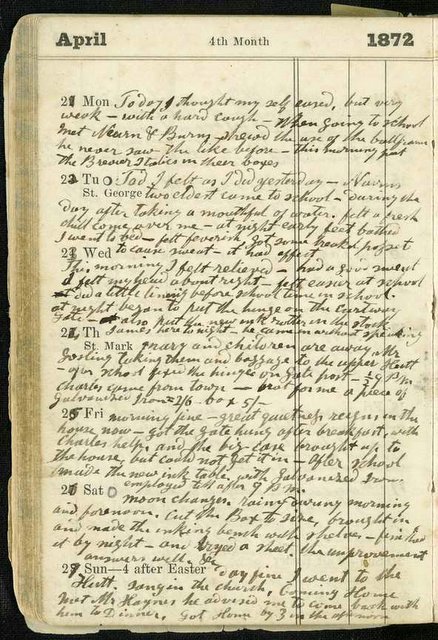 April 4th Month 1872
22 Mon Today I thought my self cured, but very
weak – with a hard cough – When going to school
met Nairn & Burns shewed the use of the ballframe
he never saw the like before – this morning put
the Brever Italics in their boxes
23 Tu Tod. I felt as I did yesterday – Nairns
St. George two eldest came to school – during the
day after taking a mouthful of water. felt a fresh
chill come over me – at night early feet bathed
I went to bed – felt feverish. Got some treakel posset
24 Wed to cause sweat – it had effect.
This morning I felt relieved – had a good sweat
& felt my head about right – felt easier at school
did a little before school time in school.
at night began to put the hinge on the cartway
Gate – also put the new ink in the stock
25 Th James here to night he came in about speaking
St. Mark Mary and children are away Mr
taking them and baggage to the upper Hutt
– after school fixed the hinges on gate post – P.M.
Charles came from town – brot for me a piece of
Galvanised Iron 2/6 box 5/–
26 Fri morning fine – great quietness reigns in the
house now – got the gate hung after breakfast, with
Charles help, and the big case brought up to
the house, but could not get it in – after school
made the new ink table with Galvanized Iron
employed till after 9 P.M.
27 Sat moon changes rainy during morning
and forenoon. Cut the Box to size, brought in
and made the inking bench with shelve – finished
it by night – and tryed a sheet. the improvement
answers well.
28 Sun—4 after Easter day fine I went to the
Hutt. Sang in the church, coming Home
met Mr Haynes he advised me to come back with
him to Dinner. Got Home by 3 in the afternoon